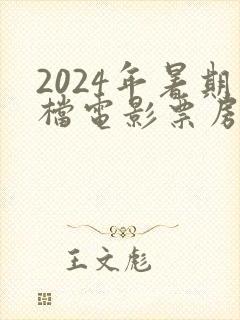 2024年暑期
檔電影票房
王文彪